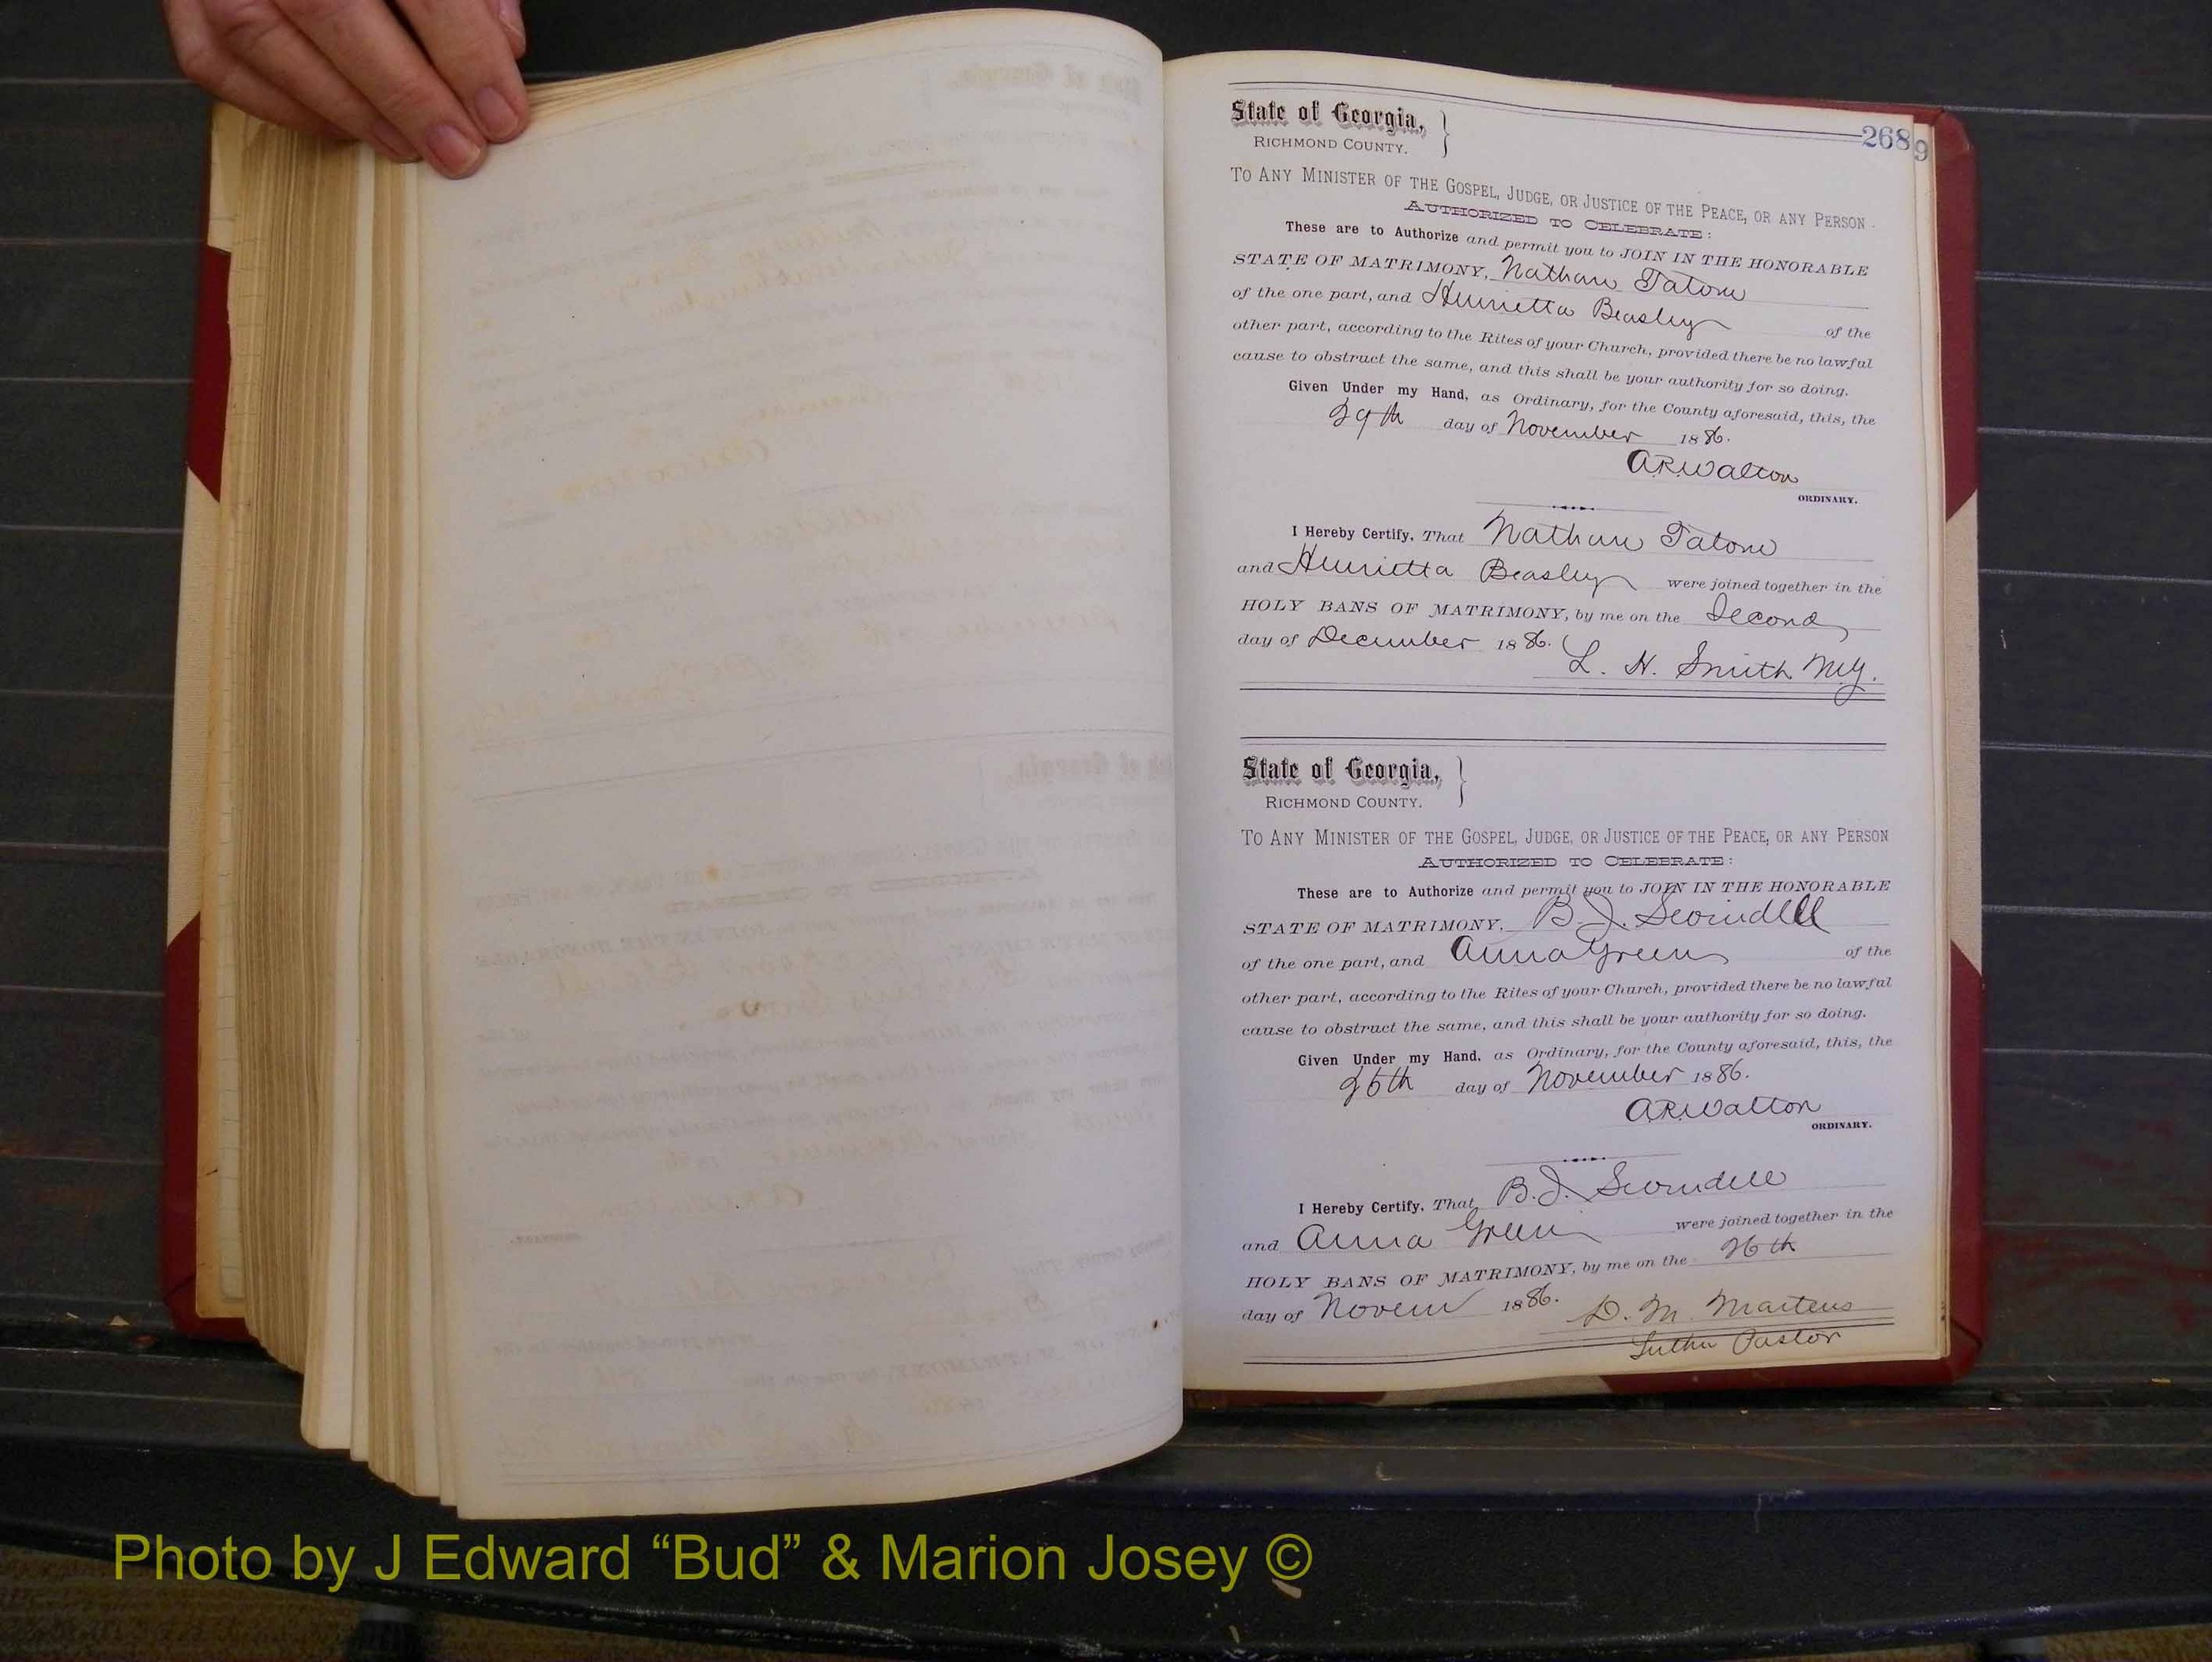 268
9
State of Georgia,
RICHMOND COUNTY.
TO ANY MINISTER OF THE GOSPEL, JUDGE, OR JUSTICE OF THE PEACE, OR ANY PERSON
AUTHORIZED TO CELEBRATE:
These are to Authorize and permit you to JOIN IN THE HONORABLE
STATE OF MATRIMONY, Nathan Tatom
of the one part, and Henrietta Beasley of the
other part, according to the Rites of your Church, provided there be no lawful
cause to obstruct the same, and this shall be your authority for so doing.
Given Under my Hand, as Ordinary, for the County aforesaid, this, the
29th day of November 1886.
A.R. Walton
ORDINARY.
I Hereby Certify, That Nathan Tatom
and Henrietta Beasley were joined together in the
HOLY BANS OF MATRIMONY, by me on the Second
day of December 1886.
L. H. Smith M.G.
State of Georgia,
RICHMOND COUNTY.
TO ANY MINISTER OF THE GOSPEL, JUDGE, OR JUSTICE OF THE PEACE, OR ANY PERSON
AUTHORIZED TO CELEBRATE:
These are to Authorize and permit you to JOIN IN THE HONORABLE
STATE OF MATRIMONY, B. J. Swindell
of the one part, and Anna Green of the
other part, according to the Rites of your Church, provided there be no lawful
cause to obstruct the same, and this shall be your authority for so doing.
Given Under my Hand, as Ordinary, for the County aforesaid, this, the
26th day of November 1886.
A.R. Walton
ORDINARY.
I Hereby Certify, That B. J. Swindell
and Anna Green were joined together in the
HOLY BANS OF MATRIMONY, by me on the 26th
day of Novem 1886.
D. M. Martens
Luthn Pastor
Photo by J Edward “Bud” & Marion Josey ©